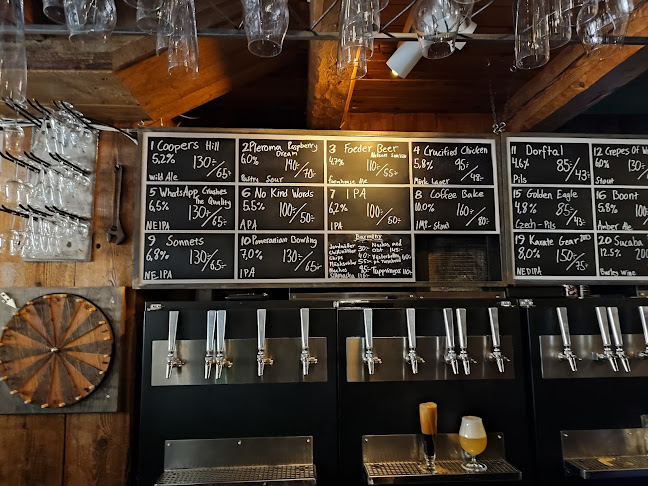 1 Coopers Hill
5,2% 130:-/65:-
Wild Ale
2 Pleroma Raspberry
Dream
6.0% 140/70:-
Pastry Sour
3 Foeder Beer
4.7%
Farmhouse Ale
4 Crucified Chicken
5,8% 95:-/48:-
Mörk Lager
5 WhatsApp Crashes
The Quality
6,5% 130/65:-
NEIPA
6 No Kind Words
5.5% 100/50:-
APA
7 IPA
6,2% 100/60:-
IPA
8 Coffee Bake
10.0% 160/80:-
IMP. Stout
9 Sonnets
6,8% 130:-/65:-
NEIPA
10 Pomeranian Bowling
7,0% 130/65:-
IPA
Barmeny
Jordnötter 30:-
Chips
Nachos
Nachos med
ost 145:-
11 Dorftal
4.6% 85/43:-
Pils
12 Crepes Of W
6.0% 130
Stout
15 Golden Eagle
4,8% 85/43:-
Czech-Pils
16 Boont
5,8%
Amber Ale
19 Karate Gear
8,0% 150/75:-
NEDIPA
20 Sucaba
12.5% 200
Barley Wine